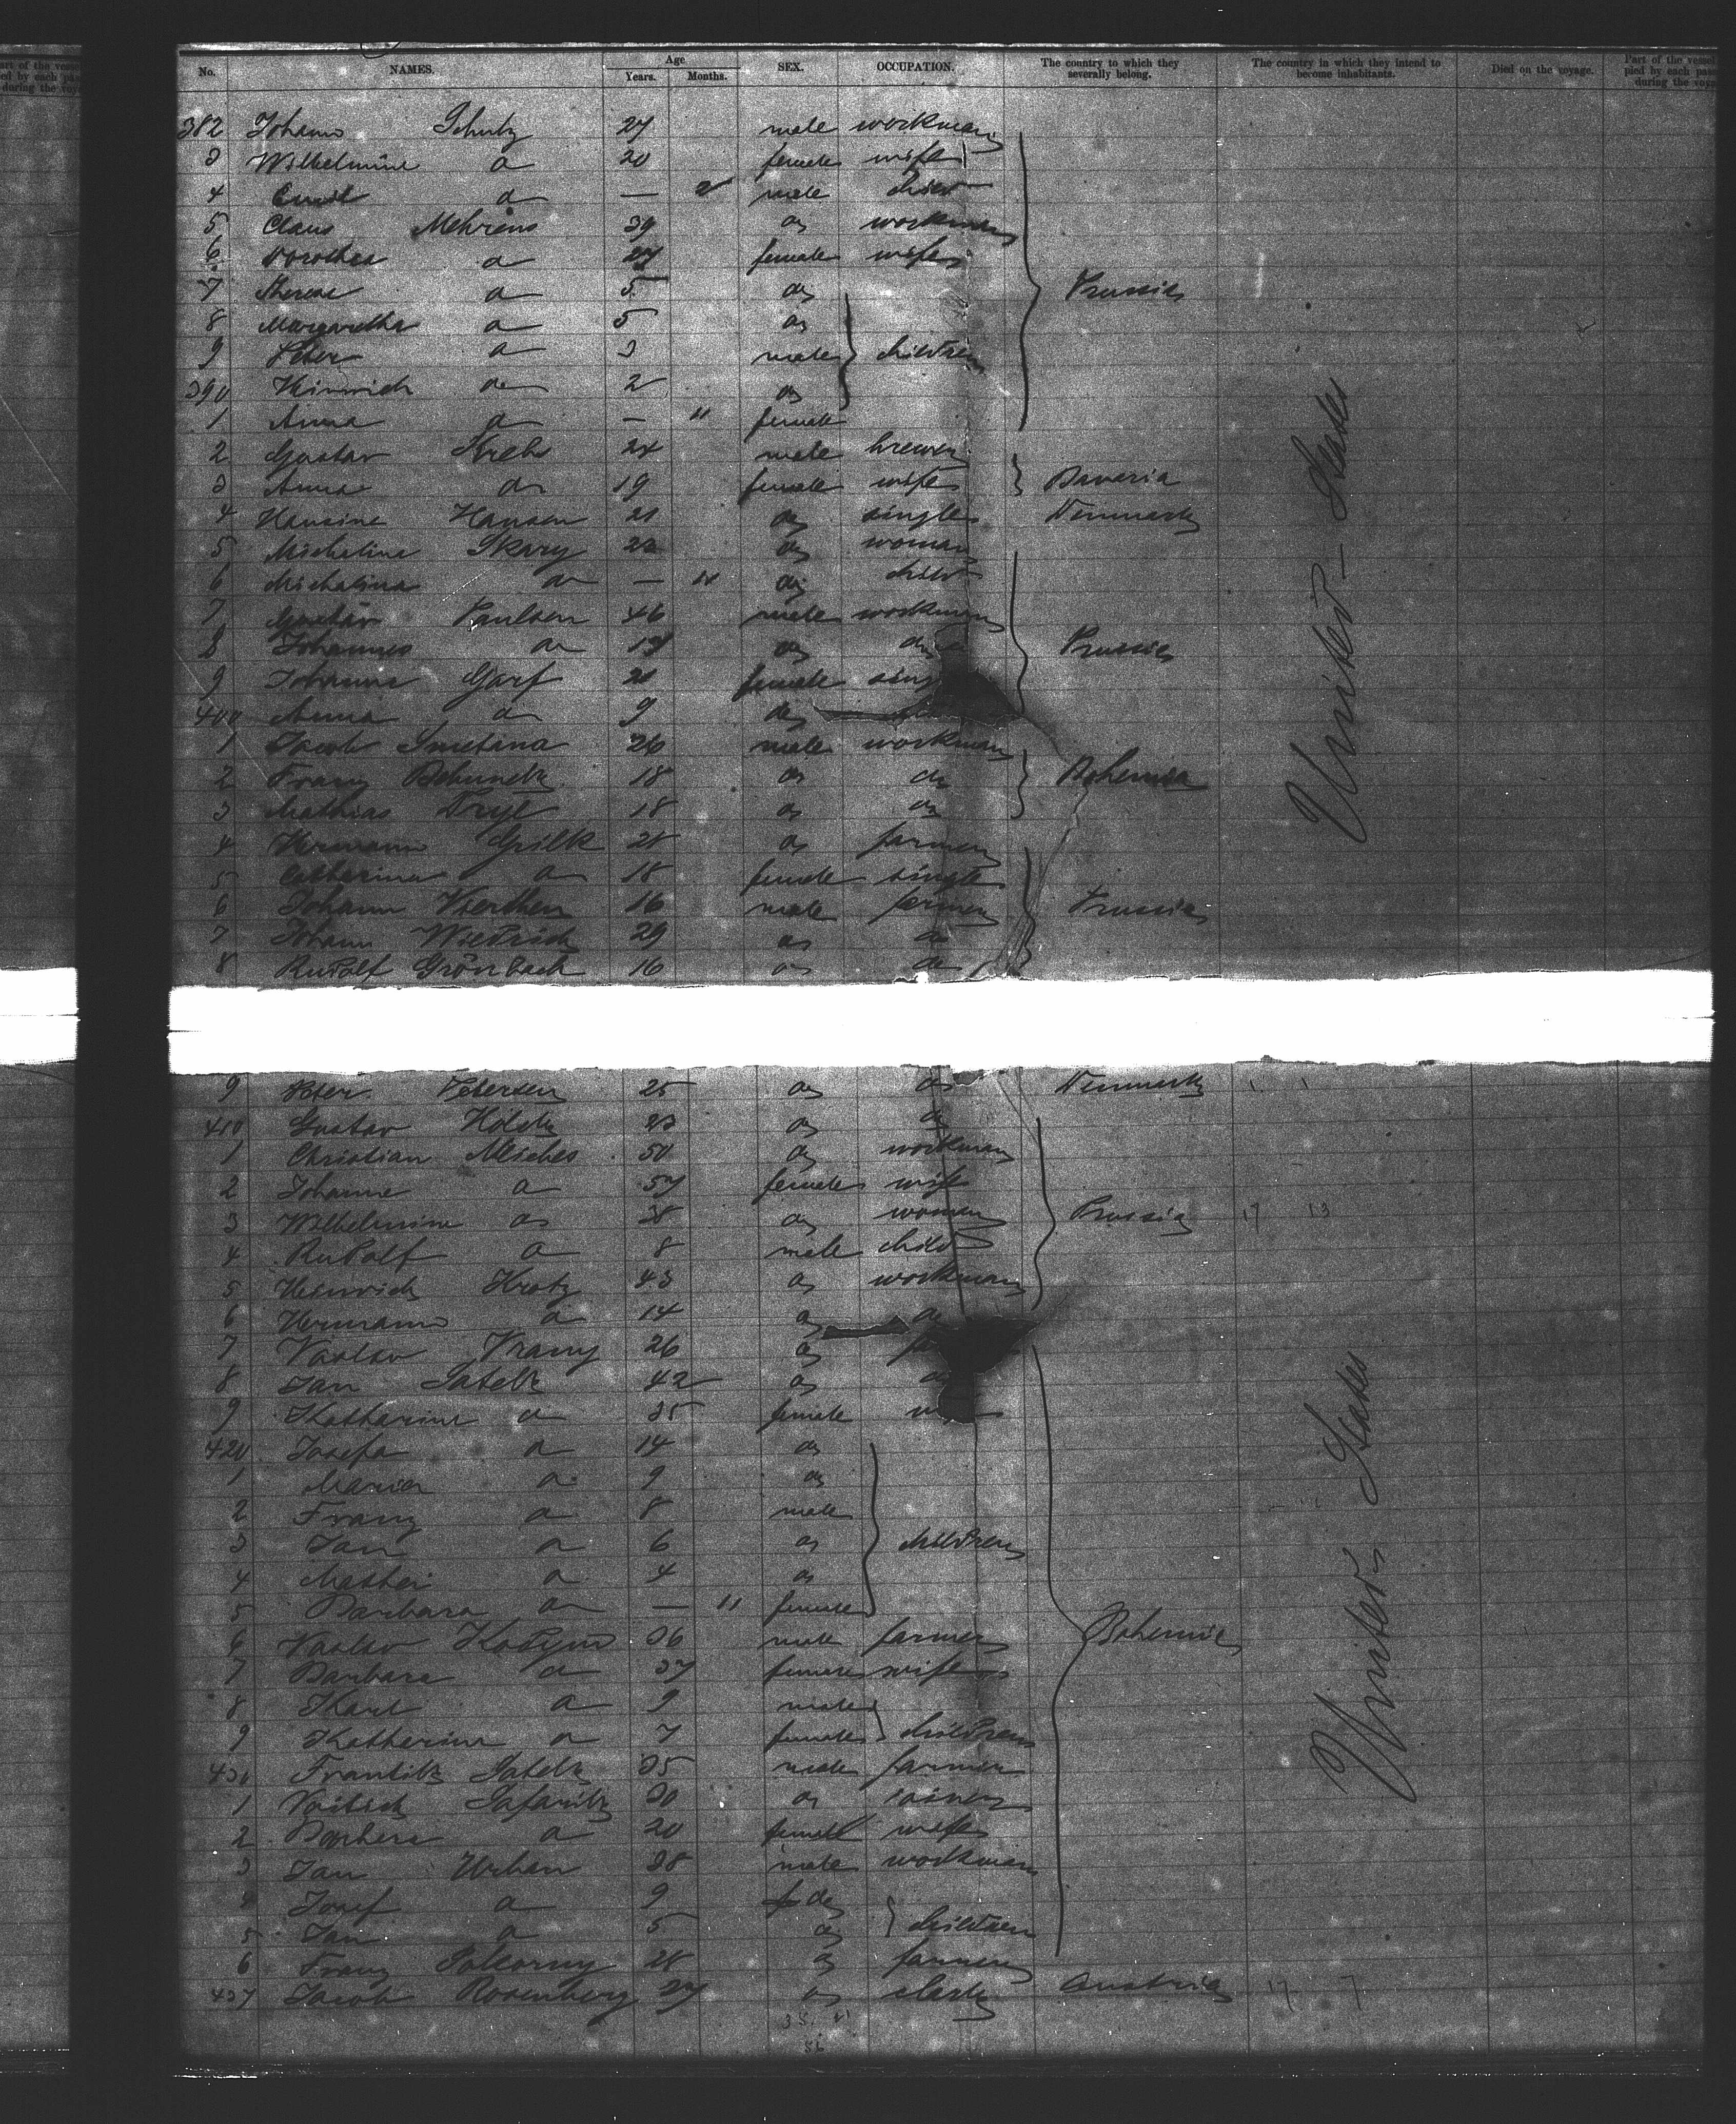 No. NAMES. Age Years. Months. SEX. OCCUPATION. The country to which they severally belong. The country in which they intend to become inhabitants. Died on the voyage.
382 Johann Schulz 27 male workman
3 Wilhelmine do 20 female wife
4 Emil do — 2 male child
5 Claus Mehrens 39 do workman
6 Dorothea do 27 female wife
7 Therese do 5 do Prussia
8 Margaretha do 5 do
9 Peter do 3 male children
390 Hinrich do 2 do
1 Anna do — 11 female
2 Gustav Krebs 24 male brewer
3 Anna do 19 female wife Bavaria
4 Hansine Hansen 21 do single Denmark
5 Micheline Skary 22 do woman
6 Michalina do — 11 do child
7 Gustav Paulsen 46 male workman
8 Johannes do 19 do do Prussia
9 Johanna Garf 21 female
400 Anna do 9 do
1 Jacob Smetana 26 male workman
2 Franz 18 do do Bohemia
3 Mathias Tryl 18 do do
4 Hermann Grilk 28 do farmer
5 Catharina do 18 female single
6 Johann Vierthen 16 male farmer Prussia
7 Johann Wiedrich 29 do do
8 Rudolf Grönback 16 do do
United States
9 Peter Petersen 25 do do Denmark
410 Gustav Holck 23 do do
1 Christian Miches 50 do workman
2 Johanne do 57 female wife
3 Wilhelmine do 38 do woman Prussia 17 13
4 Rudolf do 8 male child
5 Heinrich Krotz 43 do workman
6 Hermann do 14 do do
7 Vaclav Vrany 26 do
8 Jan Satek 42 do
9 Katharina do 35 female
420 Josefa do 14 do
1 Maria do 9 do
2 Franz do 8 male
3 Jan do 6 do children
4 Mathei do 4 do
5 Barbara do — 11 female
6 Vaclav 36 male farmer Bohemia
7 Barbara do 37 female wife
8 Karl do 9 male
9 Katharina do 7 female children
430 Frantisk Satek 35 male farmer
1 Voitech Safarik 30 do joiner
2 Barbara do 20 female wife
3 Jan Urban 38 male workman
4 Josef do 9 do
5 Jan do 5 do children
6 Franz Pokorny 28 do farmer
437 Jacob Rosenberg 27 do clerk Austria 17 7
United States